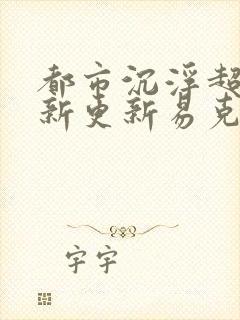 都市沉浮超
新更新易克
字宇